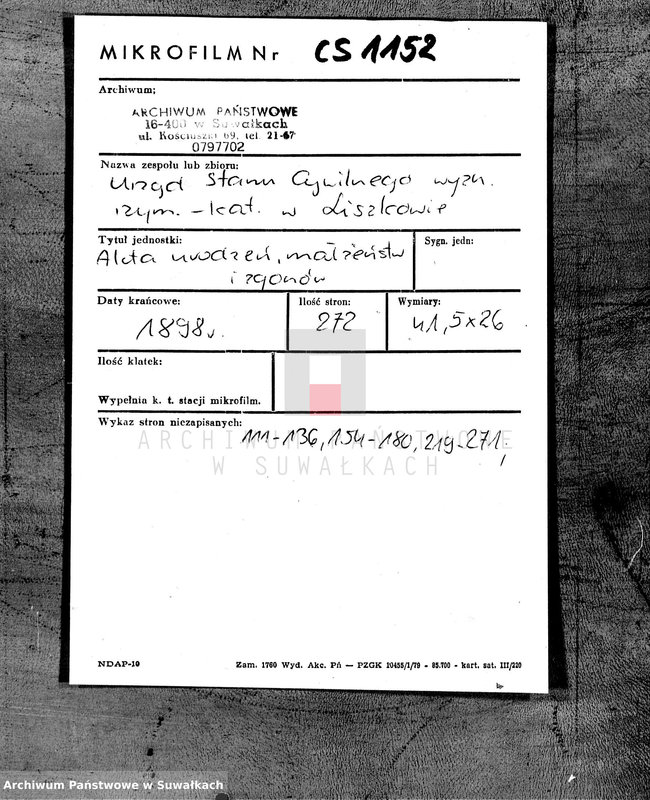 MIKROFILM Nr CS 1152
Archiwum;
ARCHIWUM PAŃSTWOWE
16-400 w Suwałkach
ul. Kościuszki 69, tel. 21-67
0797702
Nazwa zespołu lub zbioru:
Urząd Stanu Cywilnego wyzn.
rzym.-kat. w Liszkowie
Tytuł jednostki:
Akta urodzeń, małżeństw
i zgonów
Sygn. jedn:
Daty krańcowe:
1898r.
Ilość stron:
272
Wymiary:
41,5x26
Ilość klatek:
Wypełnia k. t. stacji mikrofilm.
Wykaz stron niezapisanych:
111-136, 154-180, 219-271,
ARCHIWUM PAŃSTWOWE
W SUWAŁKACH
NDAP-19
Zam. 1760 Wyd. Akc. Pń — PZGK 10455/1/79 - 85.700 - kart. sat. III/220
Archiwum Państwowe w Suwałkach